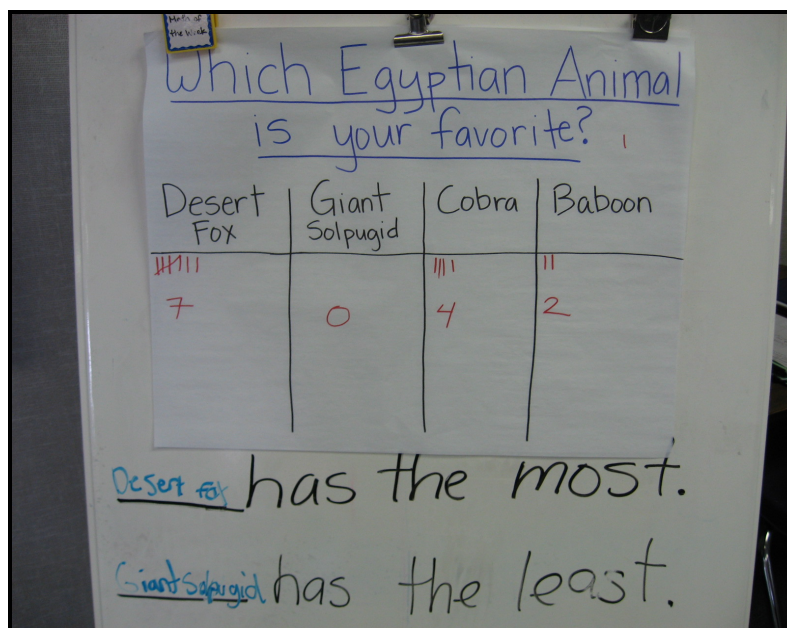 Math of
the Week
Which Egyptian Animal
is your favorite?
Desert Fox
Giant Solpugid
Cobra
Baboon
7 0 4 2
Desert fox has the most.
Giant Solpugid has the least.